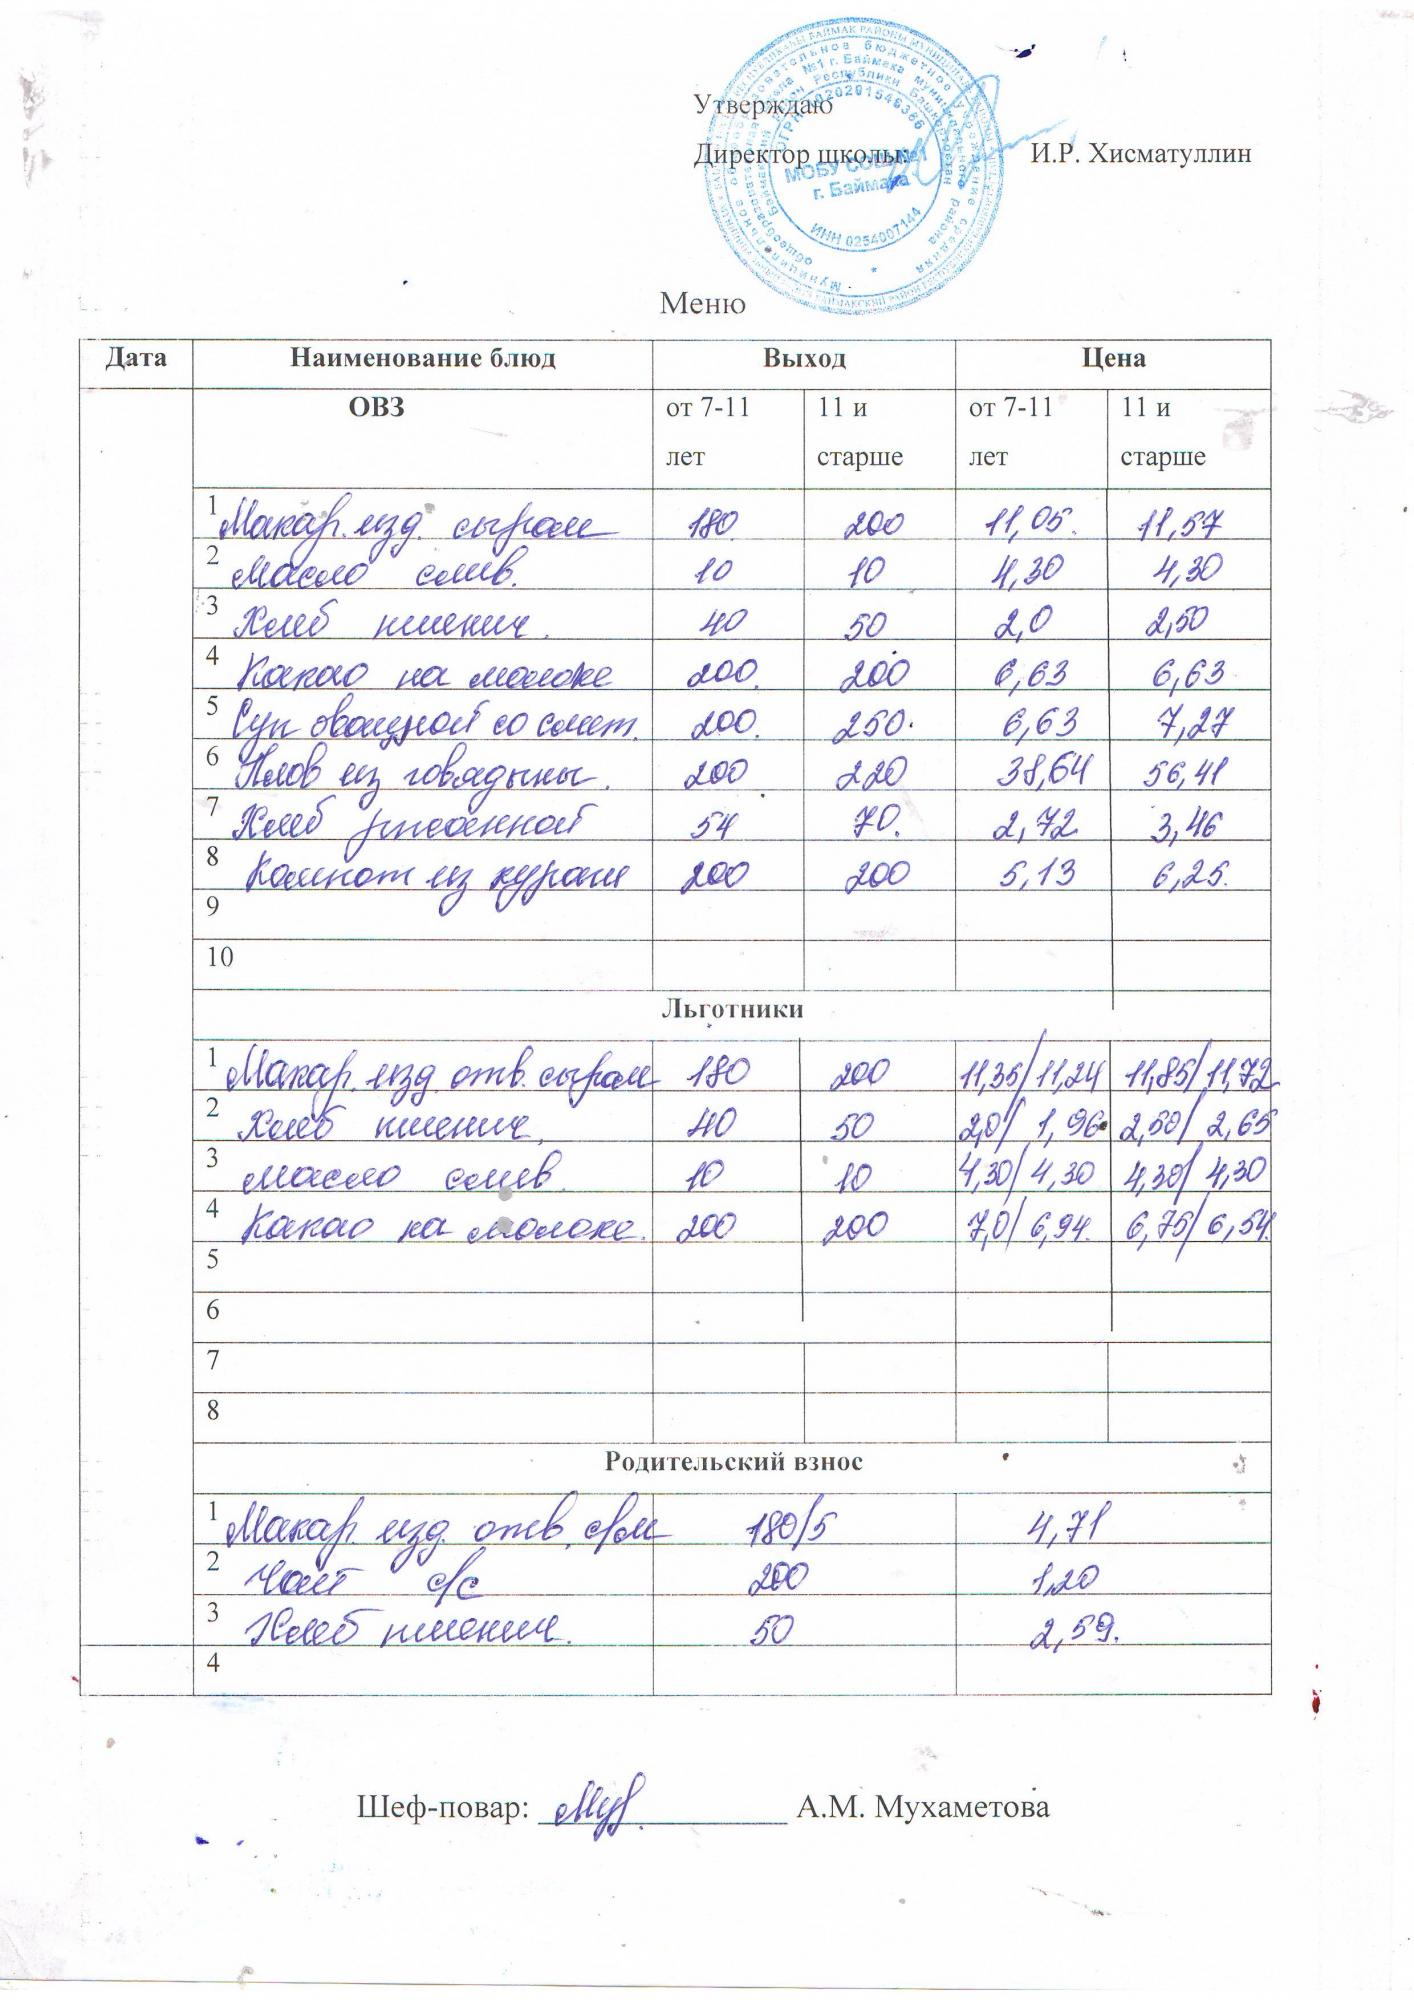 Утверждаю
Директор школы: И.Р. Хисматуллин
МОБУ СОШ №1
г. Баймака
ИНН 0254007144
Меню
Дата Наименование блюд Выход Цена
ОВЗ от 7-11 лет 11 и старше от 7-11 лет 11 и старше
1 Макар. изд. сыром 180 200 11,05 11,57
2 Масло слив. 10 10 4,30 4,30
3 Хлеб пшенич. 40 50 2,0 2,50
4 Какао на молоке 200 200 6,63 6,63
5 Суп овощной со смет. 200 250 6,63 7,27
6 Плов из говядины. 200 220 38,64 56,41
7 Хлеб ржаной 54 70 2,72 3,46
8 Компот из кураги 200 200 5,13 6,25
9
10
Льготники
1 Макар. изд отв. сыром 180 200 11,35/11,24 11,85/11,72
2 Хлеб пшенич. 40 50 2,0/ 1,96 2,50/ 2,65
3 Масло слив. 10 10 4,30/ 4,30 4,30/ 4,30
4 Какао на молоке. 200 200 7,0/ 6,94 6,75/ 6,54
5
6
7
8
Родительский взнос
1 Макар. изд. отв. с/м 180/5 4,71
2 Чай с/с 200 1,20
3 Хлеб пшенич. 50 2,59
4
Шеф-повар: А.М. Мухаметова